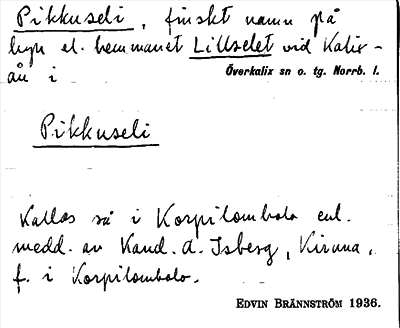 Pikkuseli, finskt namn på
byn el. hemmanet Lillselet vid Kalix-
än i Överkalix sn o. tg. Norrb. l.
Pikkuseli
Kallas så i Korpilombolo enl.
medd. av Kand. A. Isberg, Kiruna,
f. i Korpilombolo.
EDVIN BRÄNNSTRÖM 1936.